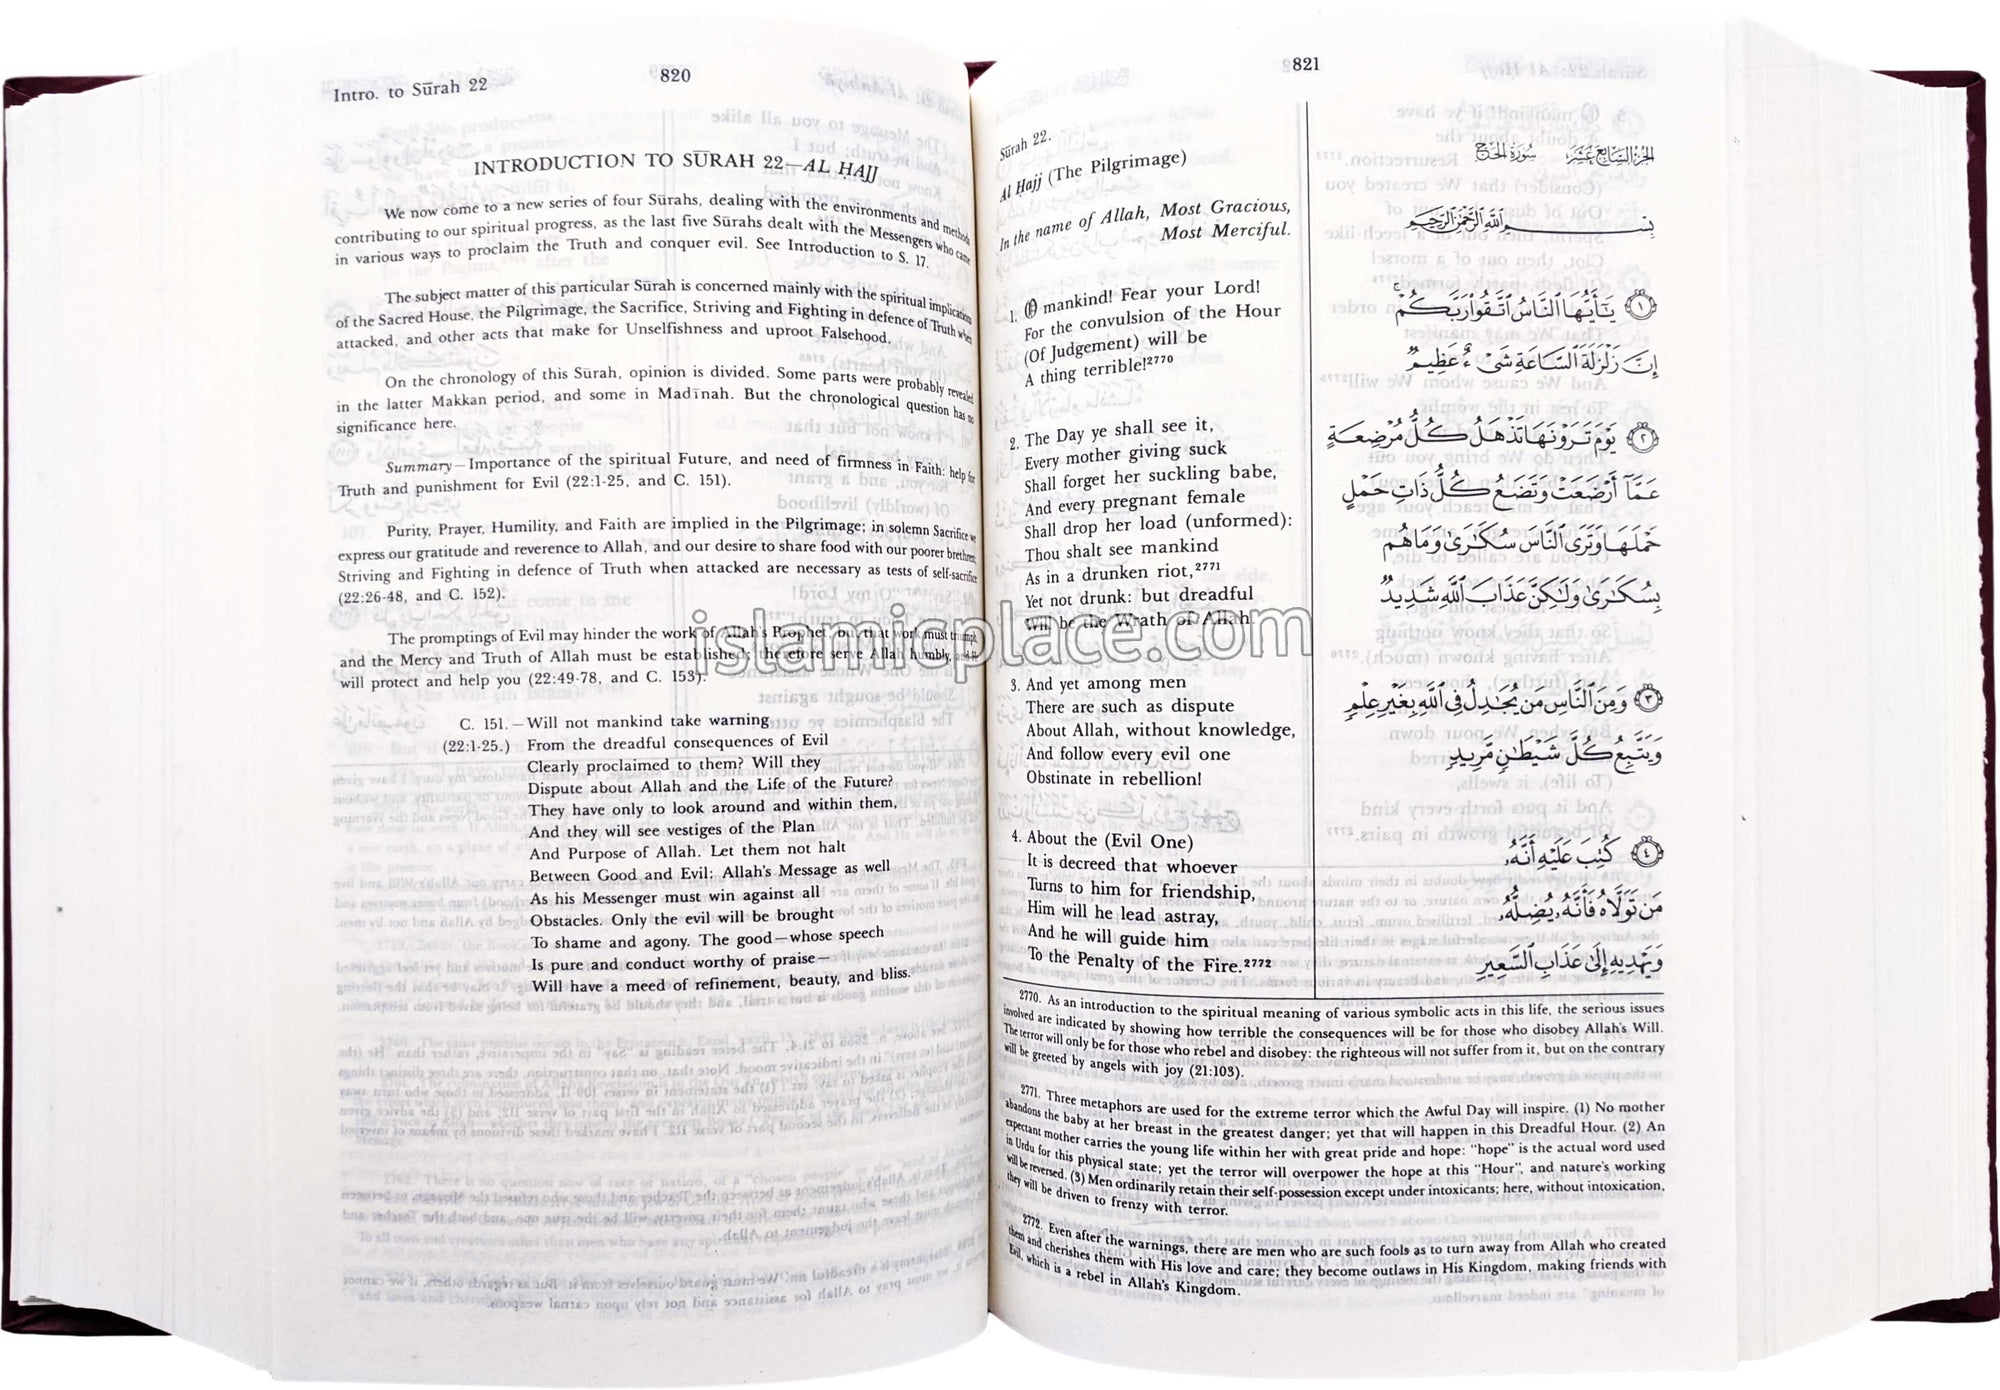 Intro. to Sūrah 22
820
INTRODUCTION TO SŪRAH 22—AL ḤAJJ
We now come to a new series of four Sūrahs, dealing with the environments and methods
contributing to our spiritual progress, as the last five Sūrahs dealt with the Messengers who came
in various ways to proclaim the Truth and conquer evil. See Introduction to S. 17.
The subject matter of this particular Sūrah is concerned mainly with the spiritual implications
of the Sacred House, the Pilgrimage, the Sacrifice, Striving and Fighting in defence of Truth when
attacked, and other acts that make for Unselfishness and uproot Falsehood.
On the chronology of this Sūrah, opinion is divided. Some parts were probably revealed
in the latter Makkan period, and some in Madīnah. But the chronological question has no
significance here.
Summary—Importance of the spiritual Future, and need of firmness in Faith: help for
Truth and punishment for Evil (22:1-25, and C. 151).
Purity, Prayer, Humility, and Faith are implied in the Pilgrimage; in solemn Sacrifice we
express our gratitude and reverence to Allah, and our desire to share food with our poorer brethren;
Striving and Fighting in defence of Truth when attacked are necessary as tests of self-sacrifice
(22:26-48, and C. 152).
The promptings of Evil may hinder the work of Allah's Prophet, but that work must triumph,
and the Mercy and Truth of Allah must be established; therefore serve Allah humbly, and He
will protect and help you (22:49-78, and C. 153).
C. 151.—Will not mankind take warning
(22:1-25.) From the dreadful consequences of Evil
Clearly proclaimed to them? Will they
Dispute about Allah and the Life of the Future?
They have only to look around and within them,
And they will see vestiges of the Plan
And Purpose of Allah. Let them not halt
Between Good and Evil: Allah's Message as well
As his Messenger must win against all
Obstacles. Only the evil will be brought
To shame and agony. The good—whose speech
Is pure and conduct worthy of praise—
Will have a meed of refinement, beauty, and bliss.
islamicplace.com
821
Sūrah 22.
Al Ḥajj (The Pilgrimage)
In the name of Allah, Most Gracious,
Most Merciful.
1. O mankind! Fear your Lord!
For the convulsion of the Hour
(Of Judgement) will be
A thing terrible!2770
2. The Day ye shall see it,
Every mother giving suck
Shall forget her suckling babe,
And every pregnant female
Shall drop her load (unformed):
Thou shalt see mankind
As in a drunken riot,2771
Yet not drunk: but dreadful
Will be the Wrath of Allah.
3. And yet among men
There are such as dispute
About Allah, without knowledge,
And follow every evil one
Obstinate in rebellion!
4. About the (Evil One)
It is decreed that whoever
Turns to him for friendship,
Him will he lead astray,
And he will guide him
To the Penalty of the Fire.2772
الجزء السابع عشر سورة الحج
بِسْمِ اللَّهِ الرَّحْمَٰنِ الرَّحِيمِ
١ يَٰٓأَيُّهَا ٱلنَّاسُ ٱتَّقُوا۟ رَبَّكُمْ
إِنَّ زَلْزَلَةَ ٱلسَّاعَةِ شَىْءٌ عَظِيمٌ
٢ يَوْمَ تَرَوْنَهَا تَذْهَلُ كُلُّ مُرْضِعَةٍ
عَمَّآ أَرْضَعَتْ وَتَضَعُ كُلُّ ذَاتِ حَمْلٍ
حَمْلَهَا وَتَرَى ٱلنَّاسَ سُكَٰرَىٰ وَمَا هُم
بِسُكَٰرَىٰ وَلَٰكِنَّ عَذَابَ ٱللَّهِ شَدِيدٌ
٣ وَمِنَ ٱلنَّاسِ مَن يُجَٰدِلُ فِى ٱللَّهِ بِغَيْرِ عِلْمٍ
وَيَتَّبِعُ كُلَّ شَيْطَٰنٍ مَّرِيدٍ
٤ كُتِبَ عَلَيْهِ أَنَّهُۥ
مَن تَوَلَّاهُ فَأَنَّهُۥ يُضِلُّهُۥ
وَيَهْدِيهِ إِلَىٰ عَذَابِ ٱلسَّعِيرِ
2770. As an introduction to the spiritual meaning of various symbolic acts in this life, the serious issues
involved are indicated by showing how terrible the consequences will be for those who disobey Allah's Will.
The terror will only be for those who rebel and disobey: the righteous will not suffer from it, but on the contrary
will be greeted by angels with joy (21:103).
2771. Three metaphors are used for the extreme terror which the Awful Day will inspire. (1) No mother
abandons the baby at her breast in the greatest danger; yet that will happen in this Dreadful Hour. (2) An
expectant mother carries the young life within her with great pride and hope: "hope" is the actual word used
in Urdu for this physical state; yet the terror will overpower the hope at this "Hour", and nature's working
will be reversed. (3) Men ordinarily retain their self-possession except under intoxicants; here, without intoxication,
they will be driven to frenzy with terror.
2772. Even after the warnings, there are men who are such fools as to turn away from Allah who created
them and cherishes them with His love and care; they become outlaws in His Kingdom, making friends with
Evil, which is a rebel in Allah's Kingdom.